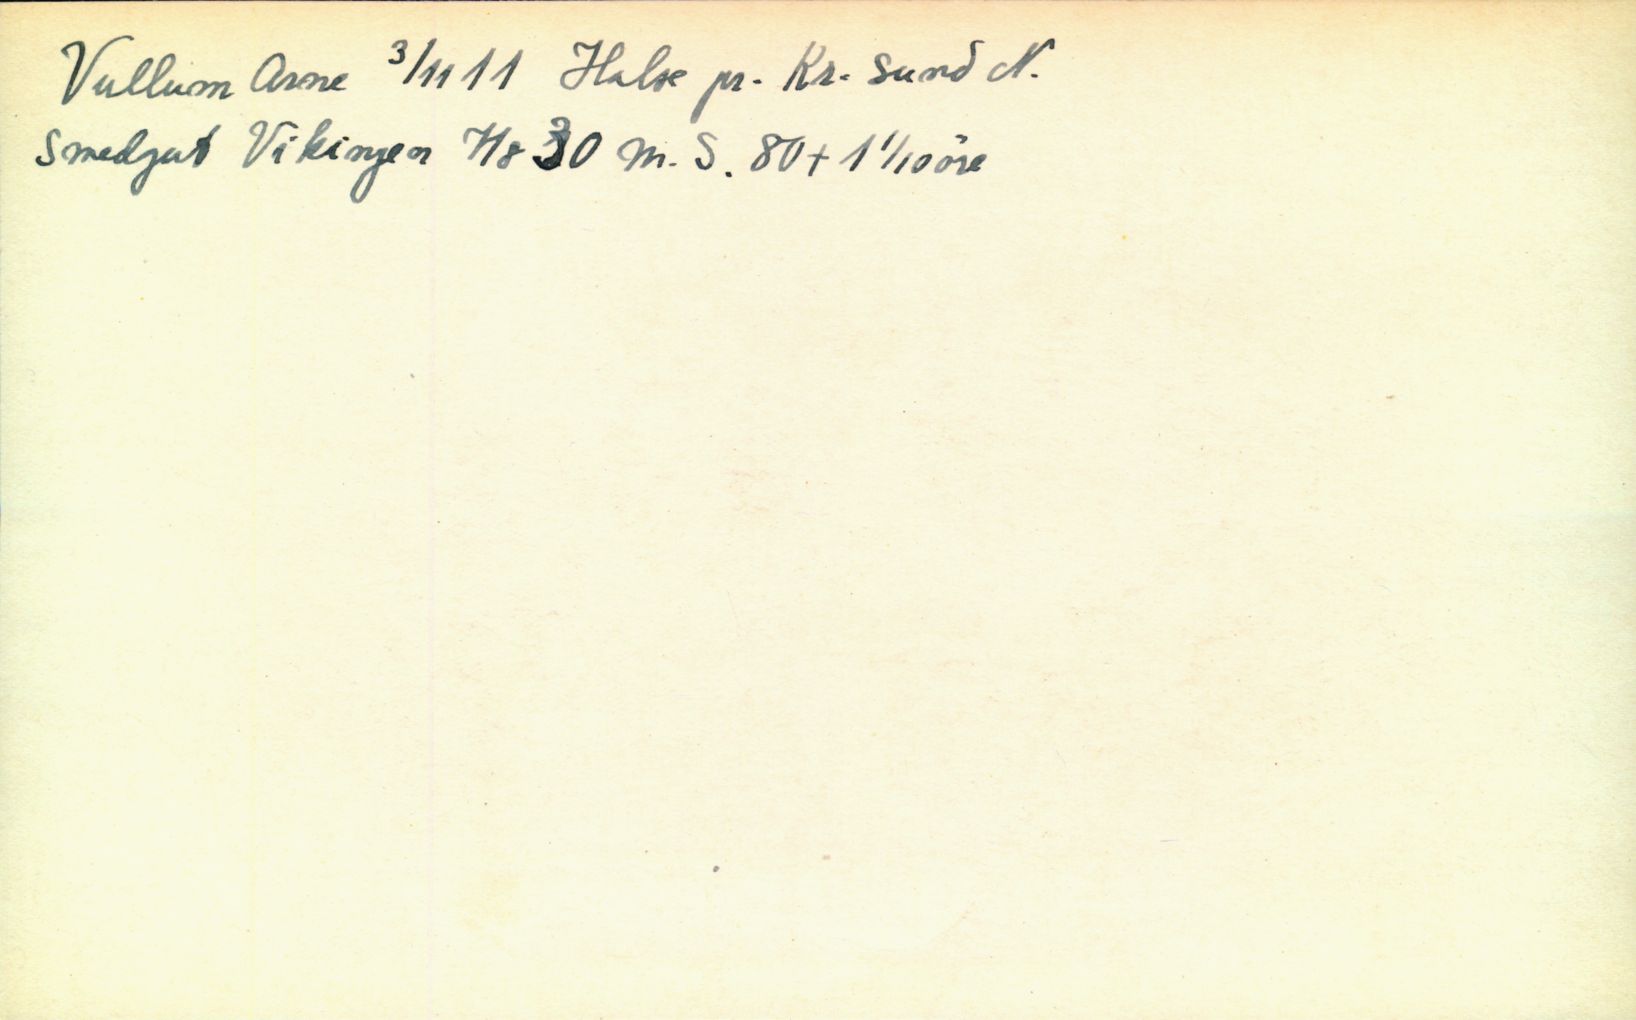 Vullum Arne 3/11 11 Halse pr. Kr. sund N.
Smedgut Vikingen Hs 30 M. S. 80 + 1 1/10 öre